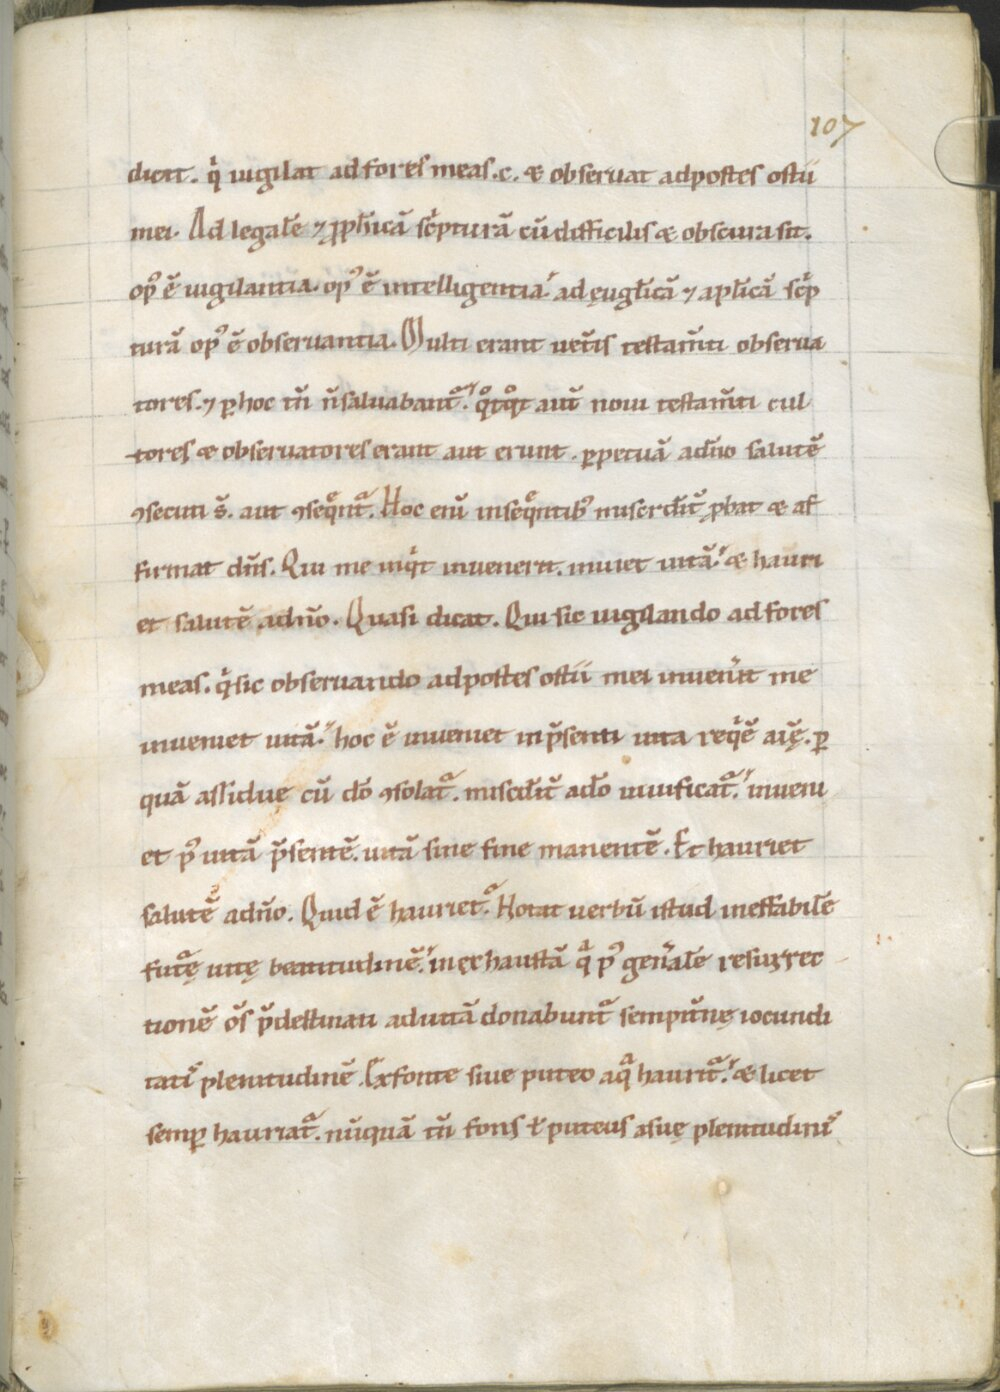 107
dicit. qͥ uigilat ad fores meas .c. & obseruat ad postes ostii
mei. Ad legalē ⁊ ꝓph̄icā sc̄pturā cū difficilis & obscura sit.
opꝰ ē uigilantia. opꝰ ē intelligentia. ad ęugl̄icā ⁊ apl̄icā sc̄p
turā opꝰ ē obseruantia. Multi erant uet̄is testam̄ti obserua
tores. ⁊ ꝑ hoc tn̄ n̄ saluabant᷑. qͦtqͦt aut̄ noui testam̄ti cul
tores & obseruatores erant aut erunt. ꝑpetuā a dn̄o salutē
ꝯsecuti s̄. aut ꝯseqͣnt᷑. Hoc enī in seqͣntibꝰ misericordit̄ ꝓbat & af
firmat dn̄s. Qui me inqͥt inuenerit. inuiet uitā. & hauri
et salutē a dn̄o. Quasi dicat. Qui sic uigilando ad fores
meas. qͥ sic obseruando ad postes ostii mei inuen̄it me
inueniet uitā. hoc ē inueniet in p̄senti uita reqͥē aīę. ꝑ
quā assidue cū dō ꝯsolat᷑. miscd̄it̄ a dō uiuificat᷑. inueni
et pꝰ uitā p̄sentē. uitā sine fine manentē. Et hauriet
salutē a dn̄o. Quid ē hauriet᷑. Notat uerbū istud ineffabilē
fut᷑ę uitę beatitudinē. inexhaustā qͣ pꝰ gen̄alē resurrec
tionē oēs p̄destinati ad uitā donabunt᷑ sempit̄nę iocundi
tatꝭ plenitudinē. Ex fonte siue puteo aqͣ haurit᷑. & licet
semꝑ hauriat᷑. nūquā tn̄ fons ł puteus a suę plenitudinꝭ